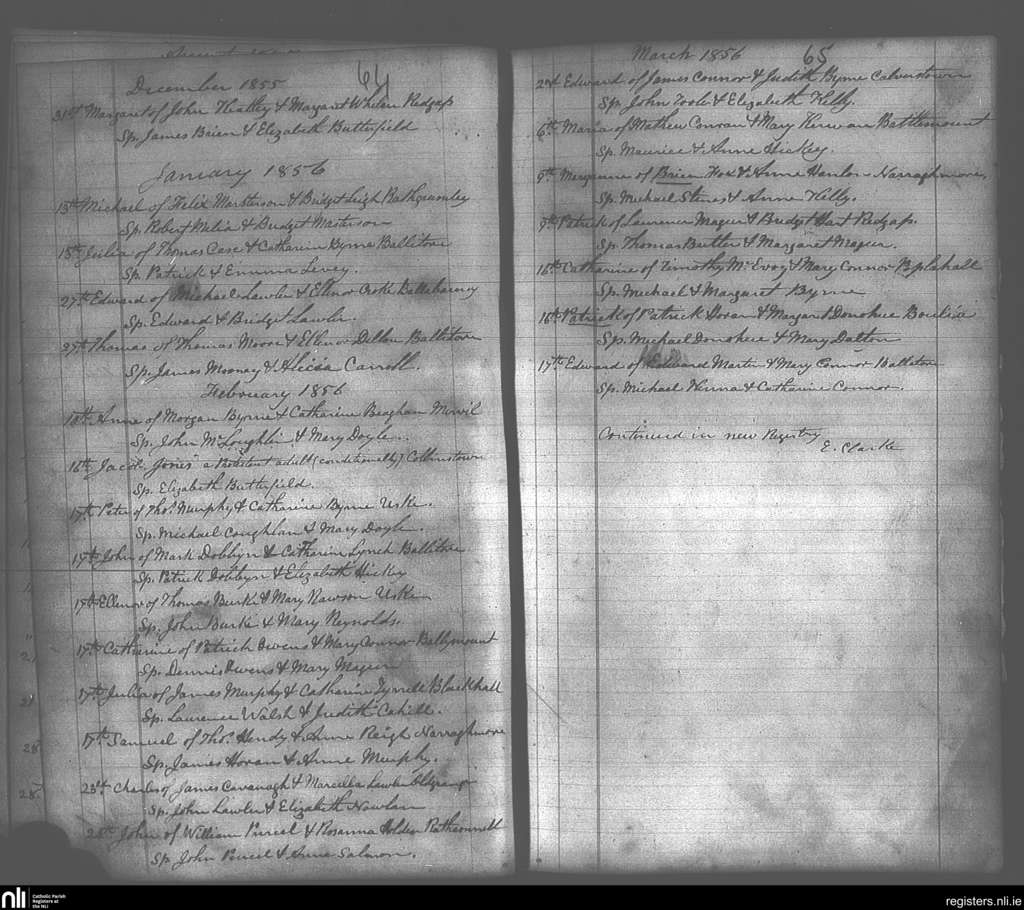 64
December 1855
31st Margaret of John Heatley & Margaret Whelan Redgap
Sp. James Brien & Elizabeth Butterfield
January 1856
13th Michael of Felix Masterson & Bridget Leigh
Sp. Robert Melia & Bridget Masterson
15th Julia of Thomas Case & Catharine Byrne Ballitore
Sp. Patrick & Emma Levey.
27th Edward of Michael Lawler & Ellenor Cook
Sp. Edward & Bridget Lawler.
27th Thomas of Thomas Moore & Ellenor Dillon Ballitore
Sp. James Mooney & Alicia Carroll.
February 1856
10th Anne of Morgan Byrne & Catharine Beaghan
Sp. John McLoughlin & Mary Doyle.
16th Jacob Jones a Protestant adult (conditionally)
Sp. Elizabeth Butterfield.
17th Peter of Thos. Murphy & Catharine Byrne Uske.
Sp. Michael Coughlan & Mary Doyle.
17th John of Mark Dobbyn & Catharine Lynch Ballitore
Sp. Patrick Dobbyn & Elizabeth Hickey
17th Ellenor of Thomas Burke & Mary Rawson Uske
Sp. John Burke & Mary Reynolds.
17th Catharine of Patrick Owens & Mary Connor Ballymount
Sp. Dennis Owens & Mary Maguer
17th Julia of James Murphy & Catharine Tyrrell Blackhall
Sp. Laurence Walsh & Judith Cahill.
17th Samuel of Thos. Hendy & Anne Reigh Narraghmore
Sp. James Horan & Anne Murphy.
23rd Charles of James Cavanagh & Marcella Lawler Oldgrange
Sp. John Lawler & Elizabeth Nowlan
25th John of William Purcel & Rosanna Holden
Sp. John Purcel & Anne Salmon.
March 1856 65
2nd Edward of James Connor & Judith Byrne Calverstown
Sp. John Toole & Elizabeth Kelly.
6th Maria of Mathew Conran & Mary Kerwan Battlemount
Sp. Maurice & Anne Hickey.
9th Maryanne of Brien Fox & Anne Hanlon Narraghmore,
Sp. Michael & Anne Kelly.
9th Patrick of Laurence Maguer & Bridget Hart Redgap.
Sp. Thomas Butler & Margaret Maguer.
16th Catharine of Timothy McEvoy & Mary Connor
Sp. Michael & Margaret Byrne
16th Patrick of Patrick Horan & Margaret Donohue
Sp. Michael Donohue & Mary Dalton
17th Edward of Edward Martin & Mary Connor Ballitore
Sp. Michael & Catharine Connor.
Continued in new Registry
E. Clarke
nli Catholic Parish
Registers at
the NLI
registers.nli.ie